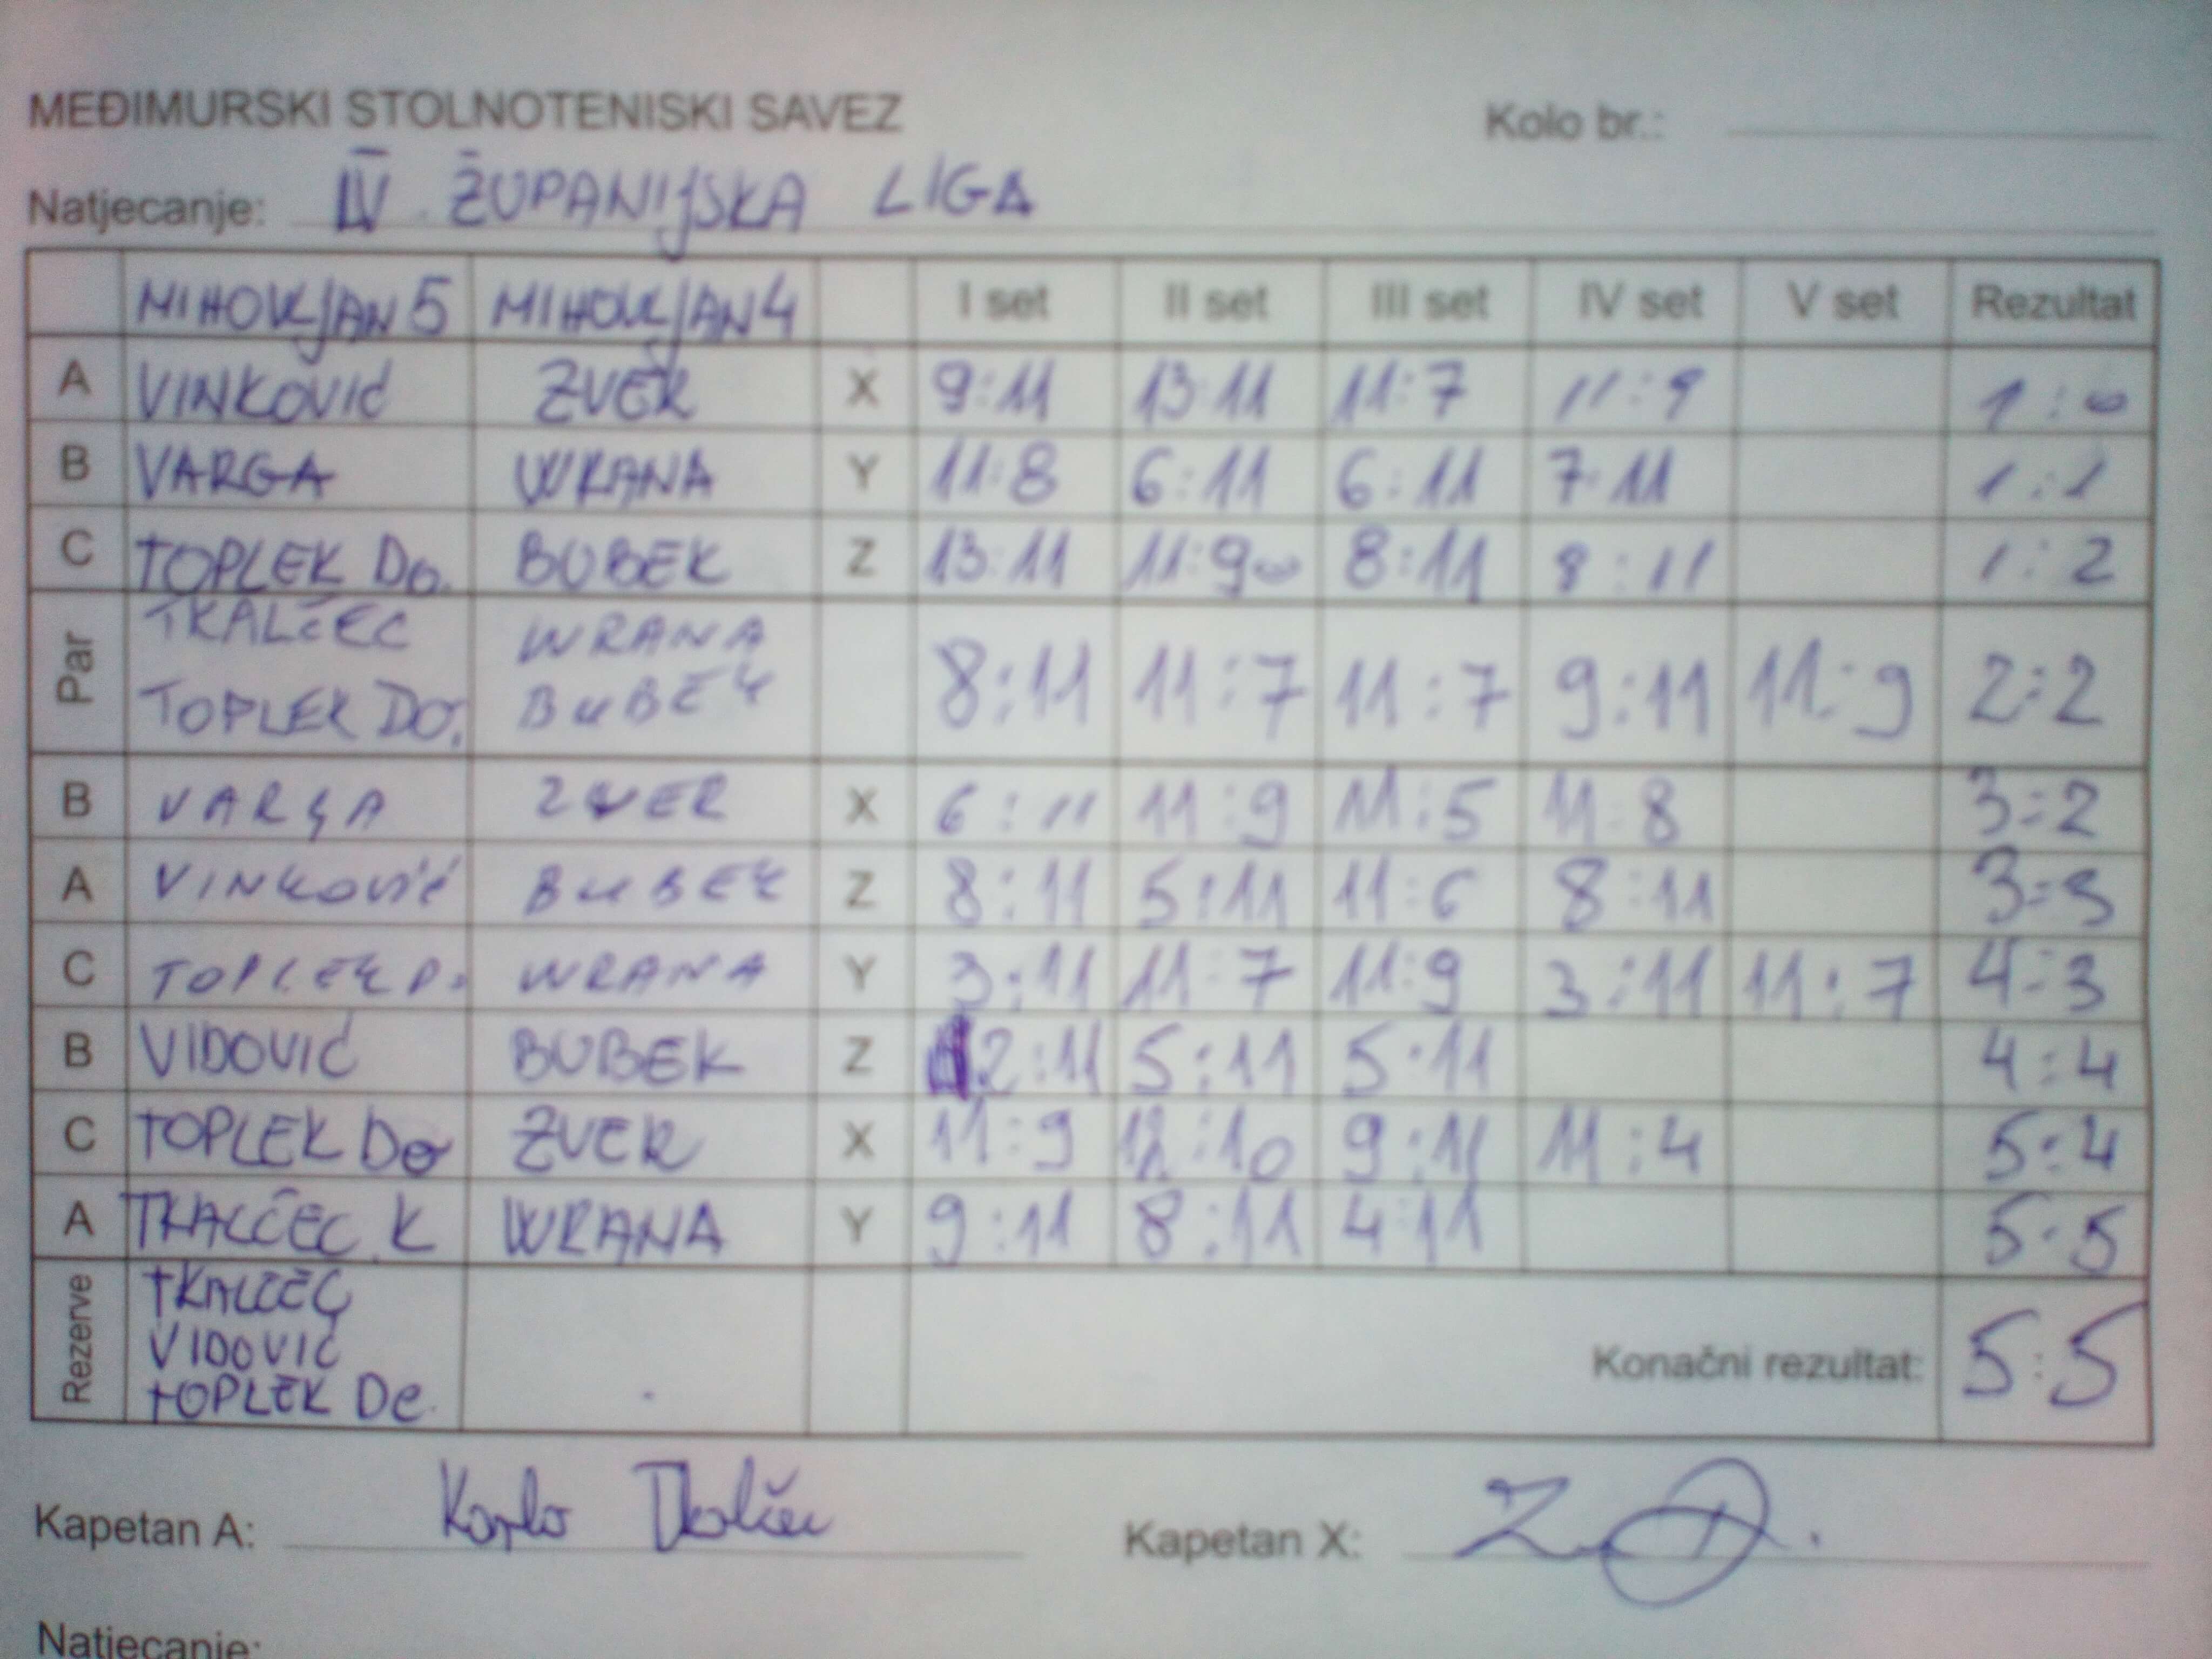 MEĐIMURSKI STOLNOTENISKI SAVEZ Kolo br.:
Natjecanje: IV. ŽUPANIJSKA LIGA
MIHOVLJAN 5 MIHOVLJAN 4 I set II set III set IV set V set Rezultat
A VINKOVIĆ ZVER X 9:11 13:11 11:7 11:9 1:0
B VARGA WRANA Y 11:8 6:11 6:11 7:11 1:1
C TOPLEK Do. BUBEK Z 13:11 11:9 8:11 8:11 1:2
Par TKALČEC WRANA
TOPLEK Do. BUBEK 8:11 11:7 11:7 9:11 11:9 2:2
B VARGA ZVER X 6:11 11:9 11:5 11:8 3:2
A VINKOVIĆ BUBEK Z 8:11 5:11 11:6 8:11 3:3
C TOPLEK D. WRANA Y 3:11 11:7 11:9 3:11 11:7 4:3
B VIDOVIĆ BUBEK Z 2:11 5:11 5:11 4:4
C TOPLEK Do ZVER X 11:9 12:10 9:11 11:4 5:4
A TKALČEC K WRANA Y 9:11 8:11 4:11 5:5
Rezerve TKALČEC
VIDOVIĆ
TOPLEK De.
Konačni rezultat: 5:5
Kapetan A: Karlo Tkalčec Kapetan X:
Natjecanje: